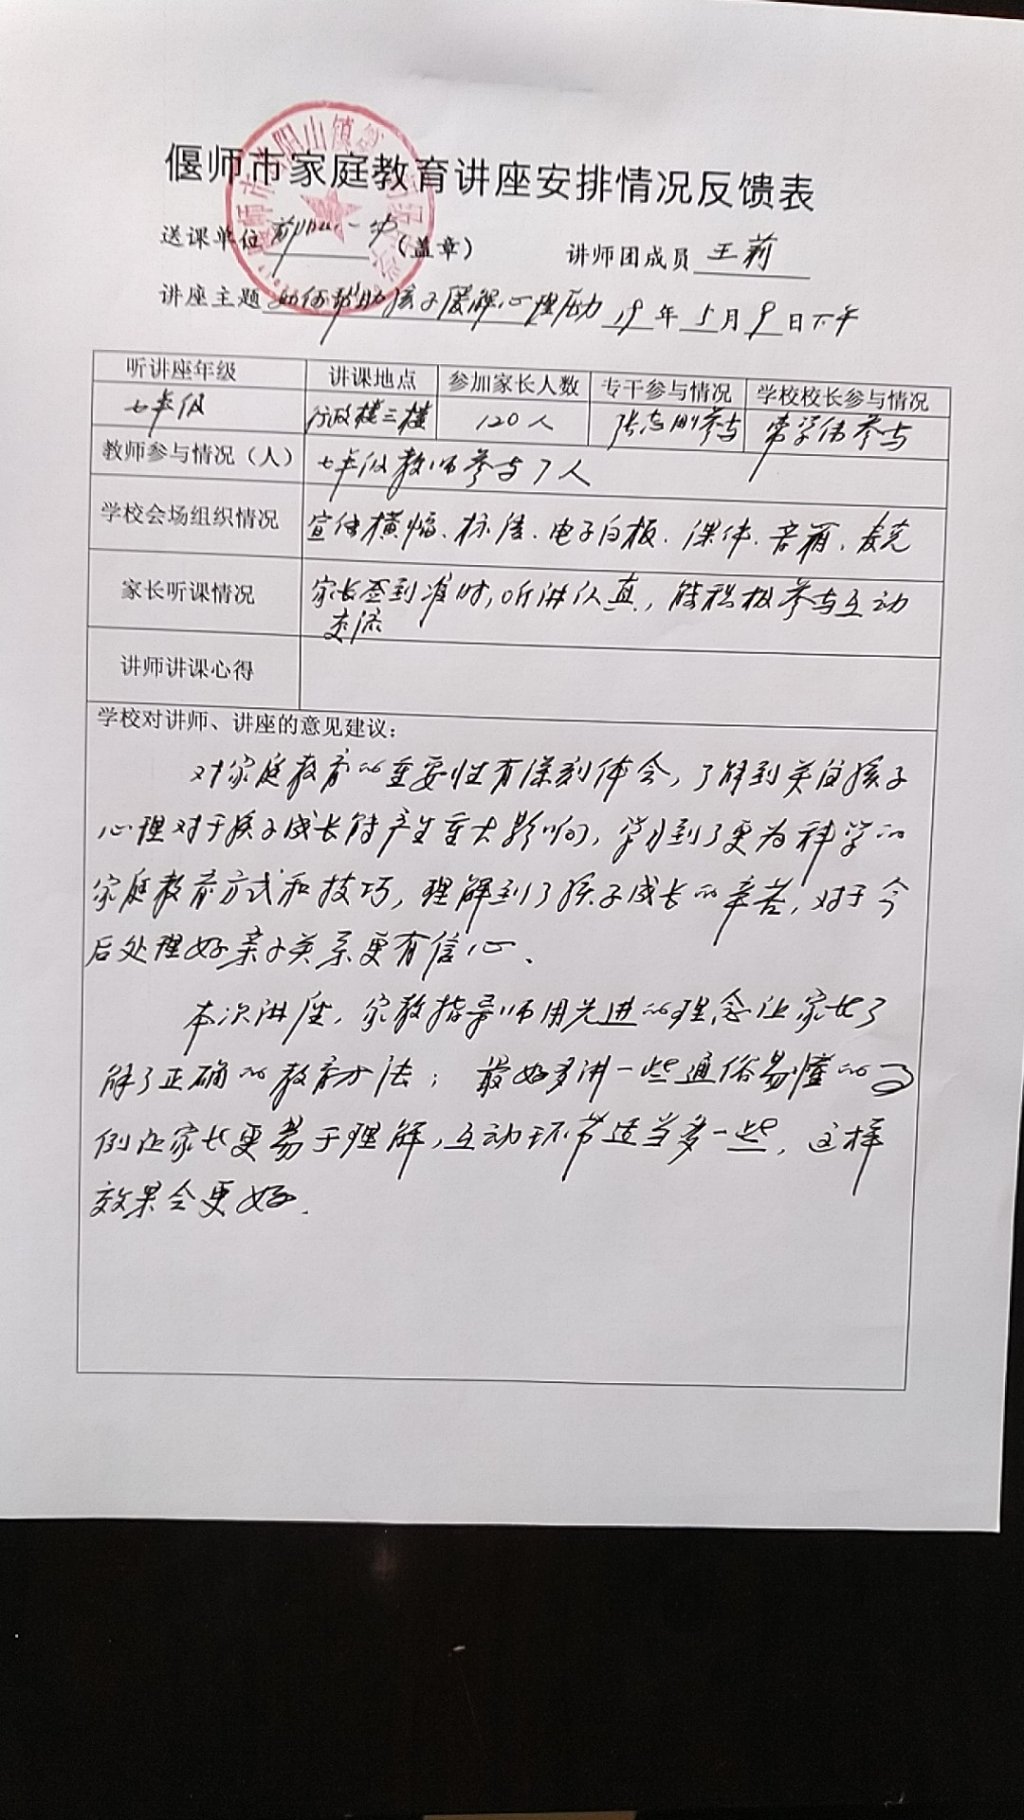 偃师市家庭教育讲座安排情况反馈表
送课单位 一中（盖章） 讲师团成员 王莉
讲座主题 如何帮助孩子缓解心理压力 19年5月9日下午
听讲座年级 讲课地点 参加家长人数 专干参与情况 学校校长参与情况
七年级 行政楼三楼 120人 张志刚参与 常学伟参与
教师参与情况（人） 七年级教师参与7人
学校会场组织情况 宣传横幅、标语、电子白板、课件、音箱、麦克
家长听课情况 家长签到准时，听讲认真，能积极参与互动
交流
讲师讲课心得
学校对讲师、讲座的意见建议：
对家庭教育的重要性有深刻体会，了解到关注孩子
心理对于孩子成长将产生重大影响，学习到了更为科学的
家庭教育方式和技巧，理解到了孩子成长的辛苦，对于今
后处理好亲子关系更有信心、
本次讲座，家教指导师用先进的理念让家长了
解了正确的教育方法；最好多讲一些通俗易懂的
例让家长更易于理解，互动环节适当多一些，这样
效果会更好．